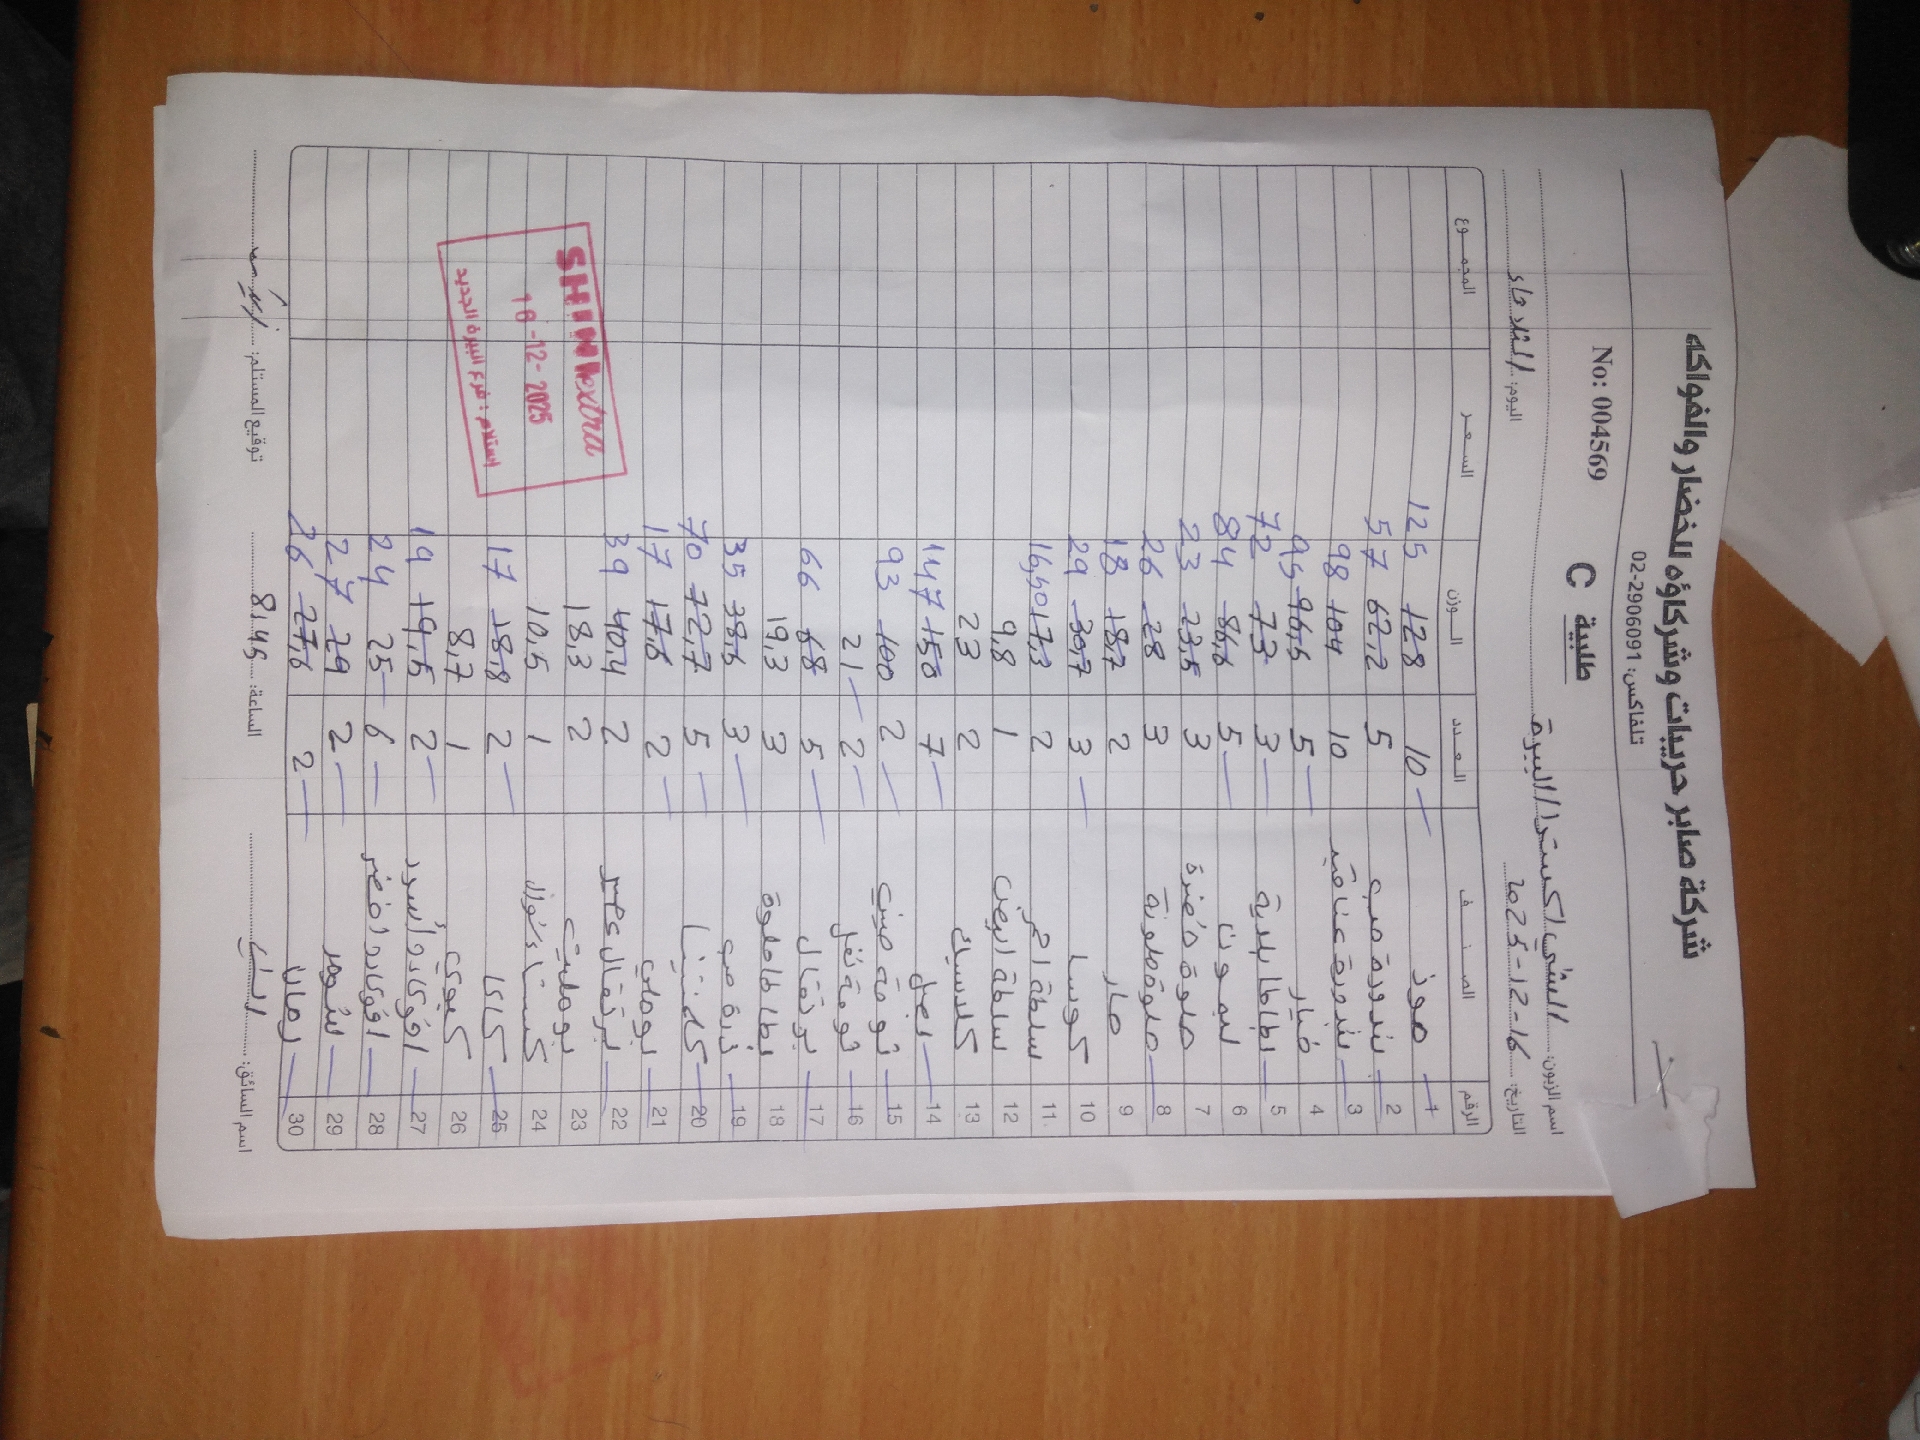 شركة صابر حريبات وشركاؤه للخضار والفواكه
تلفاكس: 02-2906091
طلبية C No: 004569
اسم الزبون: الشني اكسترا / البيرة
التاريخ: 2025-12-16 اليوم: الثلاثاء
الرقم الصنف العدد الوزن السعر المجموع
1 موز 10 128 125
2 بندورة حب 5 62,2 57
3 بندورة عناقيد 10 104 98
4 خيار 5 96,5 95
5 بطاطا بلدية 3 73 72
6 ليمون 5 86,6 84
7 حلوة خضرة 3 23,5 23
8 حلوة ملونة 3 28 26
9 حار 2 18,7 18
10 كوسا 3 30,7 29
11 سلطة احمر 2 17,3 16,50
12 سلطة ابيض 1 9,8
13 كلاسيك 2 23
14 بصل 7 150 147
15 ثومة صيني 2 100 93
16 ثومة نخل 2 21
17 برتقال 5 68 66
18 بطاطا حلوة 3 19,3
19 ذرة حب 3 38,6 35
20 كلمنتينا 5 72,7 70
21 بوملي 2 17,6 17
22 برتقال دم 2 40,4 39
23 بوملیت 2 18,3
24 كستنائوان 1 10,5
25 كاكا 2 18,8 17
26 كيوي 1 8,7
27 افوكادو أسود 2 19,5 19
28 افوكادو اخضر 6 25 24
29 شومر 2 29 27
30 رمان 2 27,6 26
اسم السائق: الساعة: 8:45 توقيع المستلم:
SHINI extra
18-12-2025
استلام: فرع البيرة الجديد